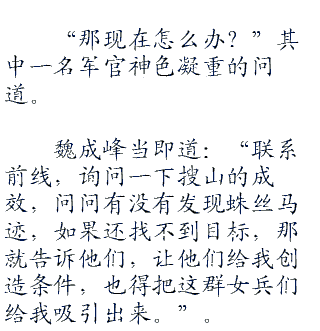 “那现在怎么办？”其
中一名军官神色凝重的问
道。
魏成峰当即道：“联系
前线，询问一下搜山的成
效，问问有没有发现蛛丝马
迹，如果还找不到目标，那
就告诉他们，让他们给我创
造条件，也得把这群女兵们
给我吸引出来。”。